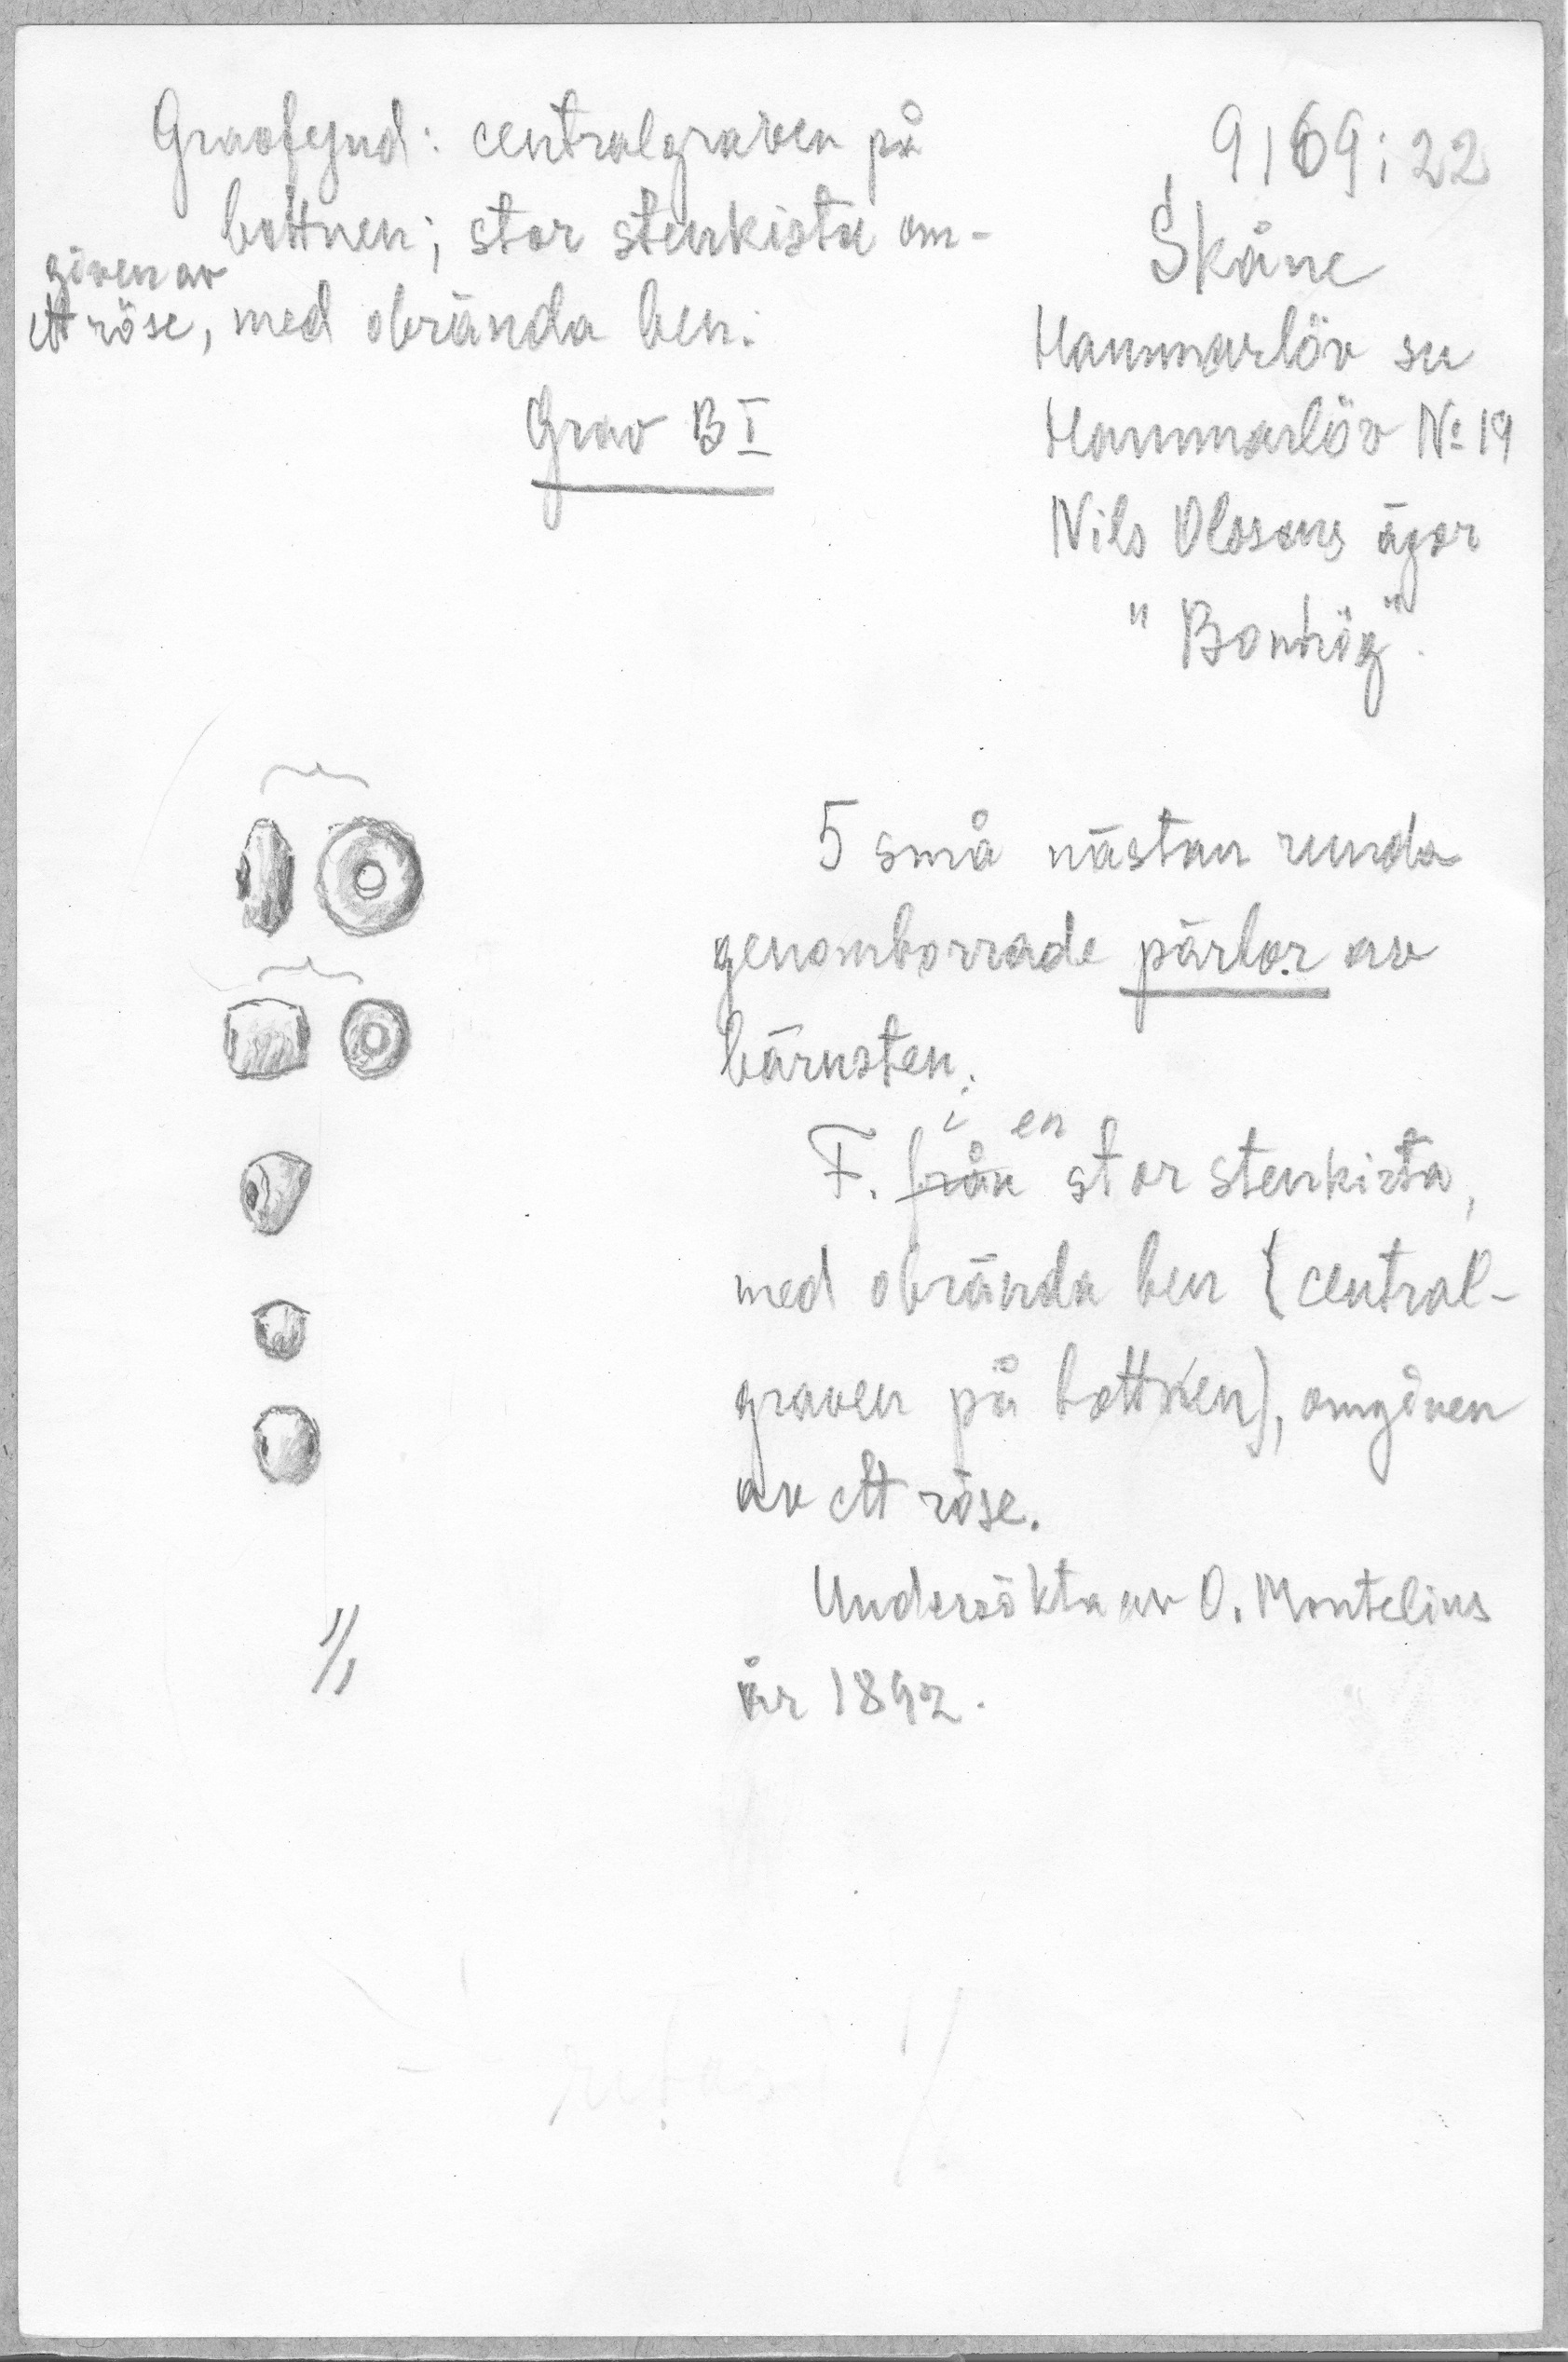 Gravfynd: centralgraven på
bottnen; stor stenkista om-
given av
ett röse, med obrända ben.
Grav B I
9169:22
Skåne
Hammarlöv sn
Hammarlöv No 19
Nils Olssons ägor
"Bonhög".
5 små nästan runda
genomborrade pärlor av
bärnsten.
i en
F. från stor stenkista,
med obrända ben (central-
graven på bottnen), omgiven
av ett röse.
Undersökta av O. Montelius
år 1892.
1/1